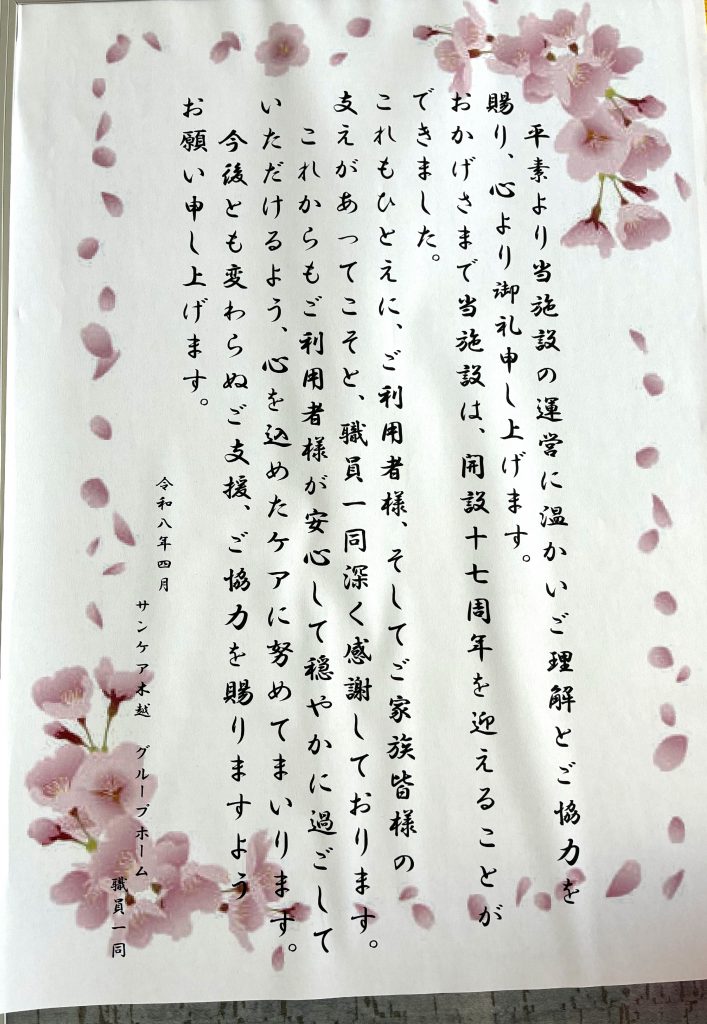 平素より当施設の運営に温かいご理解とご協力を
賜り、心より御礼申し上げます。
おかげさまで当施設は、開設十七周年を迎えることが
できました。
これもひとえに、ご利用者様、そしてご家族皆様の
支えがあってこそと、職員一同深く感謝しております。
これからもご利用者様が安心して穏やかに過ごして
いただけるよう、心を込めたケアに努めてまいります。
今後とも変わらぬご支援、ご協力を賜りますよう
お願い申し上げます。
令和八年四月
サンケア木越　グループホーム
職員一同